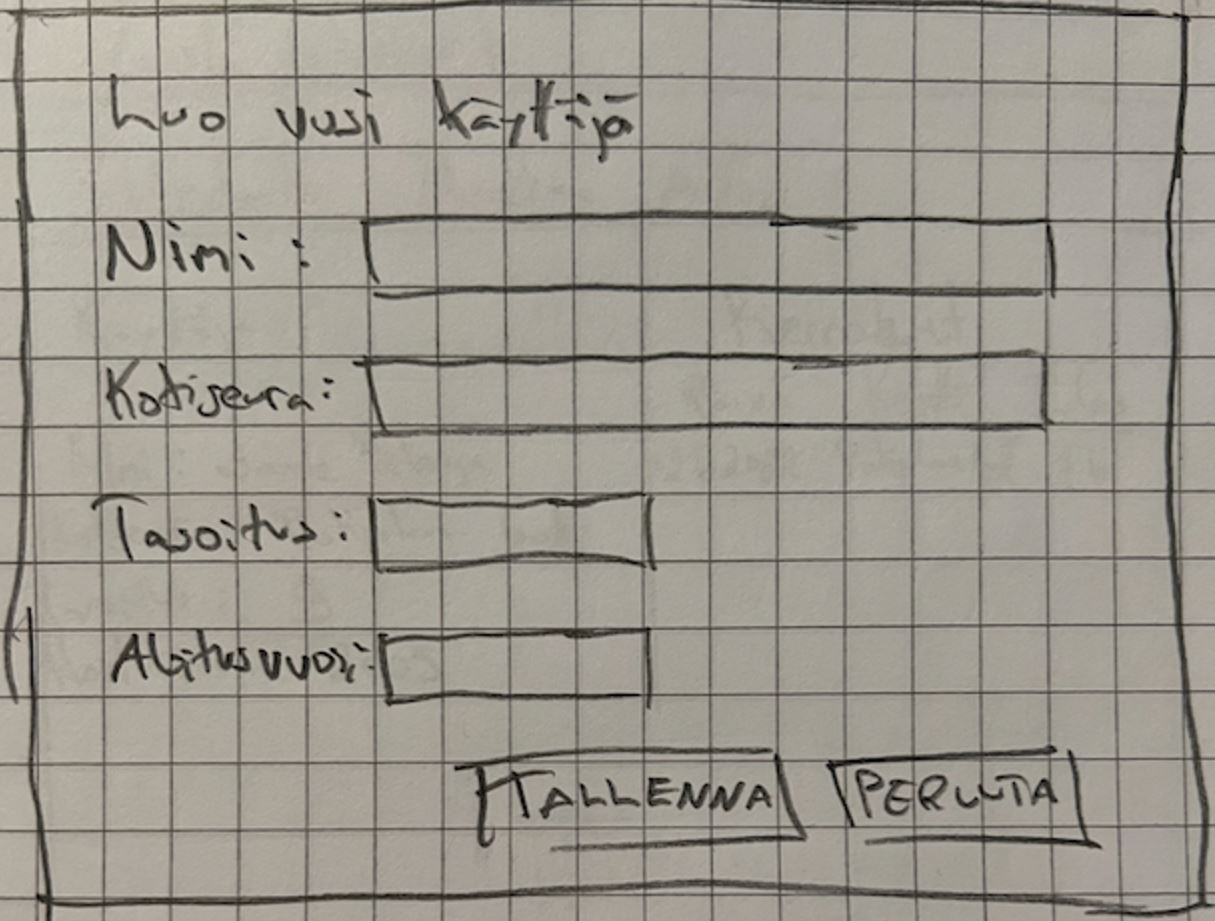 Luo uusi käyttäjä
Nimi :
Kotiseura:
Tasoitus:
Aloitusvuosi:
TALLENNA PERUUTA